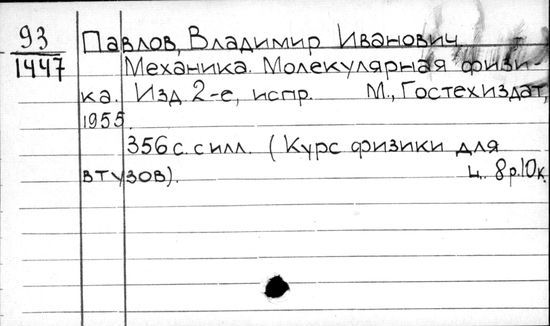 93
1447
Павлов, Владимир Иванович
Механика. Молекулярная физи-
ка. Изд 2-е, испр. М., Гостехиздат,
1955.
356 с. с илл. (Курс физики для
втузов). ц. 8р.10к.